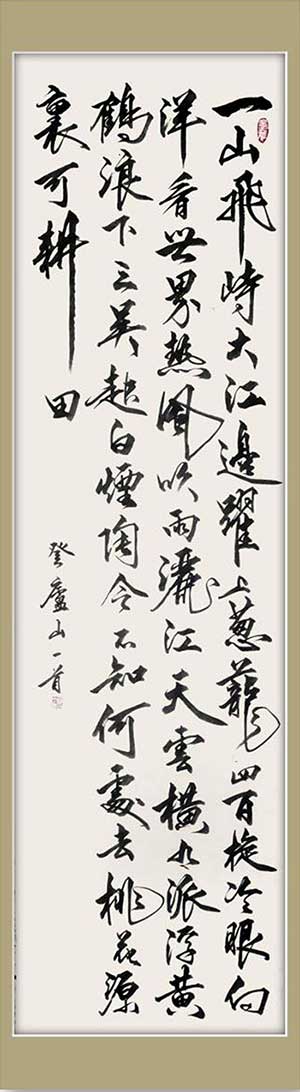 一山飛峙大江邊躍上葱蘢四百旋冷眼向
洋看世界熱風吹雨灑江天雲橫九派浮黃
鶴浪下三吳起白煙陶令不知何處去桃花源
裏可耕田
登廬山一首